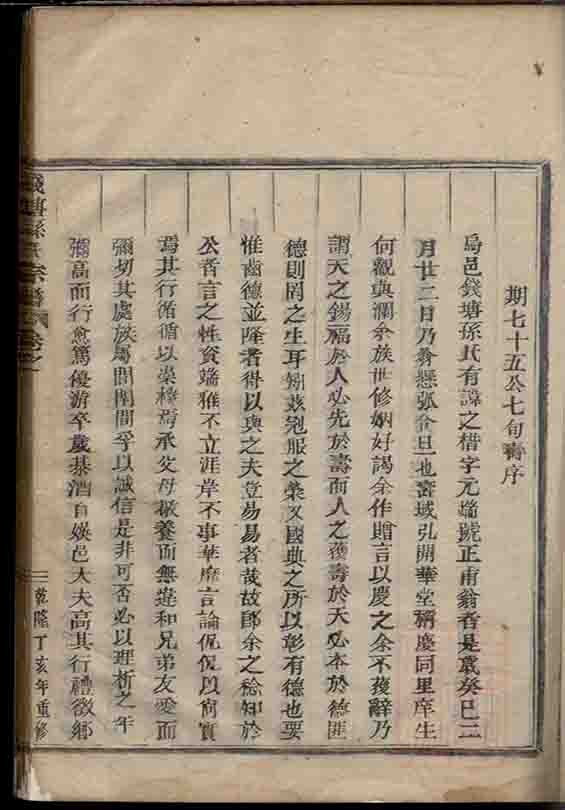 期七十五公七旬壽序
烏邑錢塘孫氏有諱之楷字元端號正甫翁者是歲癸巳二
月廿二日乃翁懸弧令旦也壽域弘開華堂稱慶同里庠生
何觀與瀾余族世修姻好謁余作贈言以慶之余不獲辭乃
謂天之錫福於人必先於壽而人之獲壽於天必本於德匪
德則罔之生耳矧茲冠服之榮又國典之所以彰有德也要
惟齒德並隆者得以與之夫豈易易者哉故卽余之稔知於
公者言之性資端雅不立涯岸不事華靡言論侃侃以尚實
焉其行循循以樂稱焉承父母敬養而無違和兄弟友愛而
彌切其處族屬閭閈間孚以誠信是非可否必以理析之年
彌高而行愈篤優游卒歲棊酒自娛邑大夫高其行禮徵鄉
錢塘孫氏宗譜 卷之一
乾隆丁亥年重修